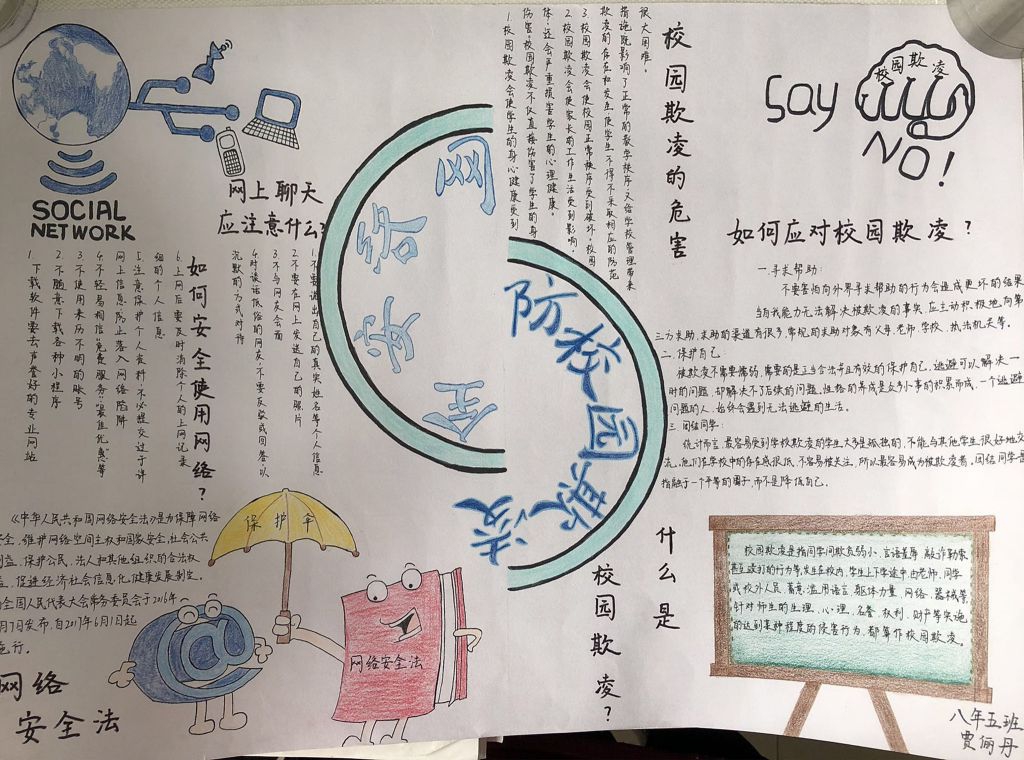 SOCIAL
NETWORK
网上聊天
应注意什么?
1.不要说出自己的真实姓名等个人信息
2.不要在网上发送自己的照片
3.不与网友会面
4.对谈话低俗的网友,不要反驳或回答,以
沉默的方式对待
如何安全使用网络?
1.下载软件要去声誉好的专业网站
2.不随意下载各种小程序
3.不使用来历不明的账号
4.不轻易相信"免费服务""装佳优惠"等
网上信息,防止落入网络陷阱
5.注意保护个人资料,不必提交过于详
细的个人信息
6.上网后要及时消除个人的上网记录
《中华人民共和国网络安全法》是为保障网络
安全,维护网络空间主权和国家安全,社会公共
利益,保护公民、法人和其他组织的合法权
益,促进经济社会信息化健康发展制定。
全国人民代表大会常务委员会于2016年
月7日发布,自2017年6月1起
施行。
网络
安全法
保护伞
网络安全法
网络安全
防校园欺凌
校园欺凌的危害
1.校园欺凌会使学生的身心健康受到
伤害,校园欺凌不仅直接伤害了学生的身
体,还会严重损害学生的心理健康。
2.校园欺凌会使家长的工作生活受到影响。
3.校园欺凌会使校园正常秩序受到破坏。校园
欺凌的存在和发生使学生不得不采取相应的防范
措施,既影响了正常的教学秩序,又给学校管理带来
很大困难。
Say
NO!
校园欺凌
如何应对校园欺凌?
一.寻求帮助:
不要害怕向外界寻求帮助的行为会造成更坏的结果
当自我能力无法解决被欺凌的事实,应主动积极地向第
三方求助,求助的渠道有很多,常规的求助对象有父母、老师、学校、执法机关等。
二.保护自己:
被欺凌不需要懦弱,需要的是正当合法并且有效的保护自己,逃避可以解决一
时的问题,却解决不了后续的问题。性格的养成是众多小事的积累而成,一个逃避
问题的人,始终会遇到无法逃避的生活。
三.团结同学:
统计而言,最容易受到学校欺凌的学生大多是孤独的,不能与其他学生很好地交
流。他们在学校中的存在感很低,不容易被关注,所以最容易成为被欺凌者。团结同学是
指融于一个平等的圈子,而不是降低自己。
什么是
校园欺凌?
校园欺凌是指同学间欺负弱小、言语羞辱、敲诈勒索
甚至殴打的行为等,发生在校内、学生上下学途中,由老师、同学
或校外人员,蓄意滥用语言、躯体力量、网络、器械等,
针对师生的生理、心理、名誉、权利、财产等实施
的达到某种程度的侵害行为,都算作校园欺凌。
八年五班
贾俪丹